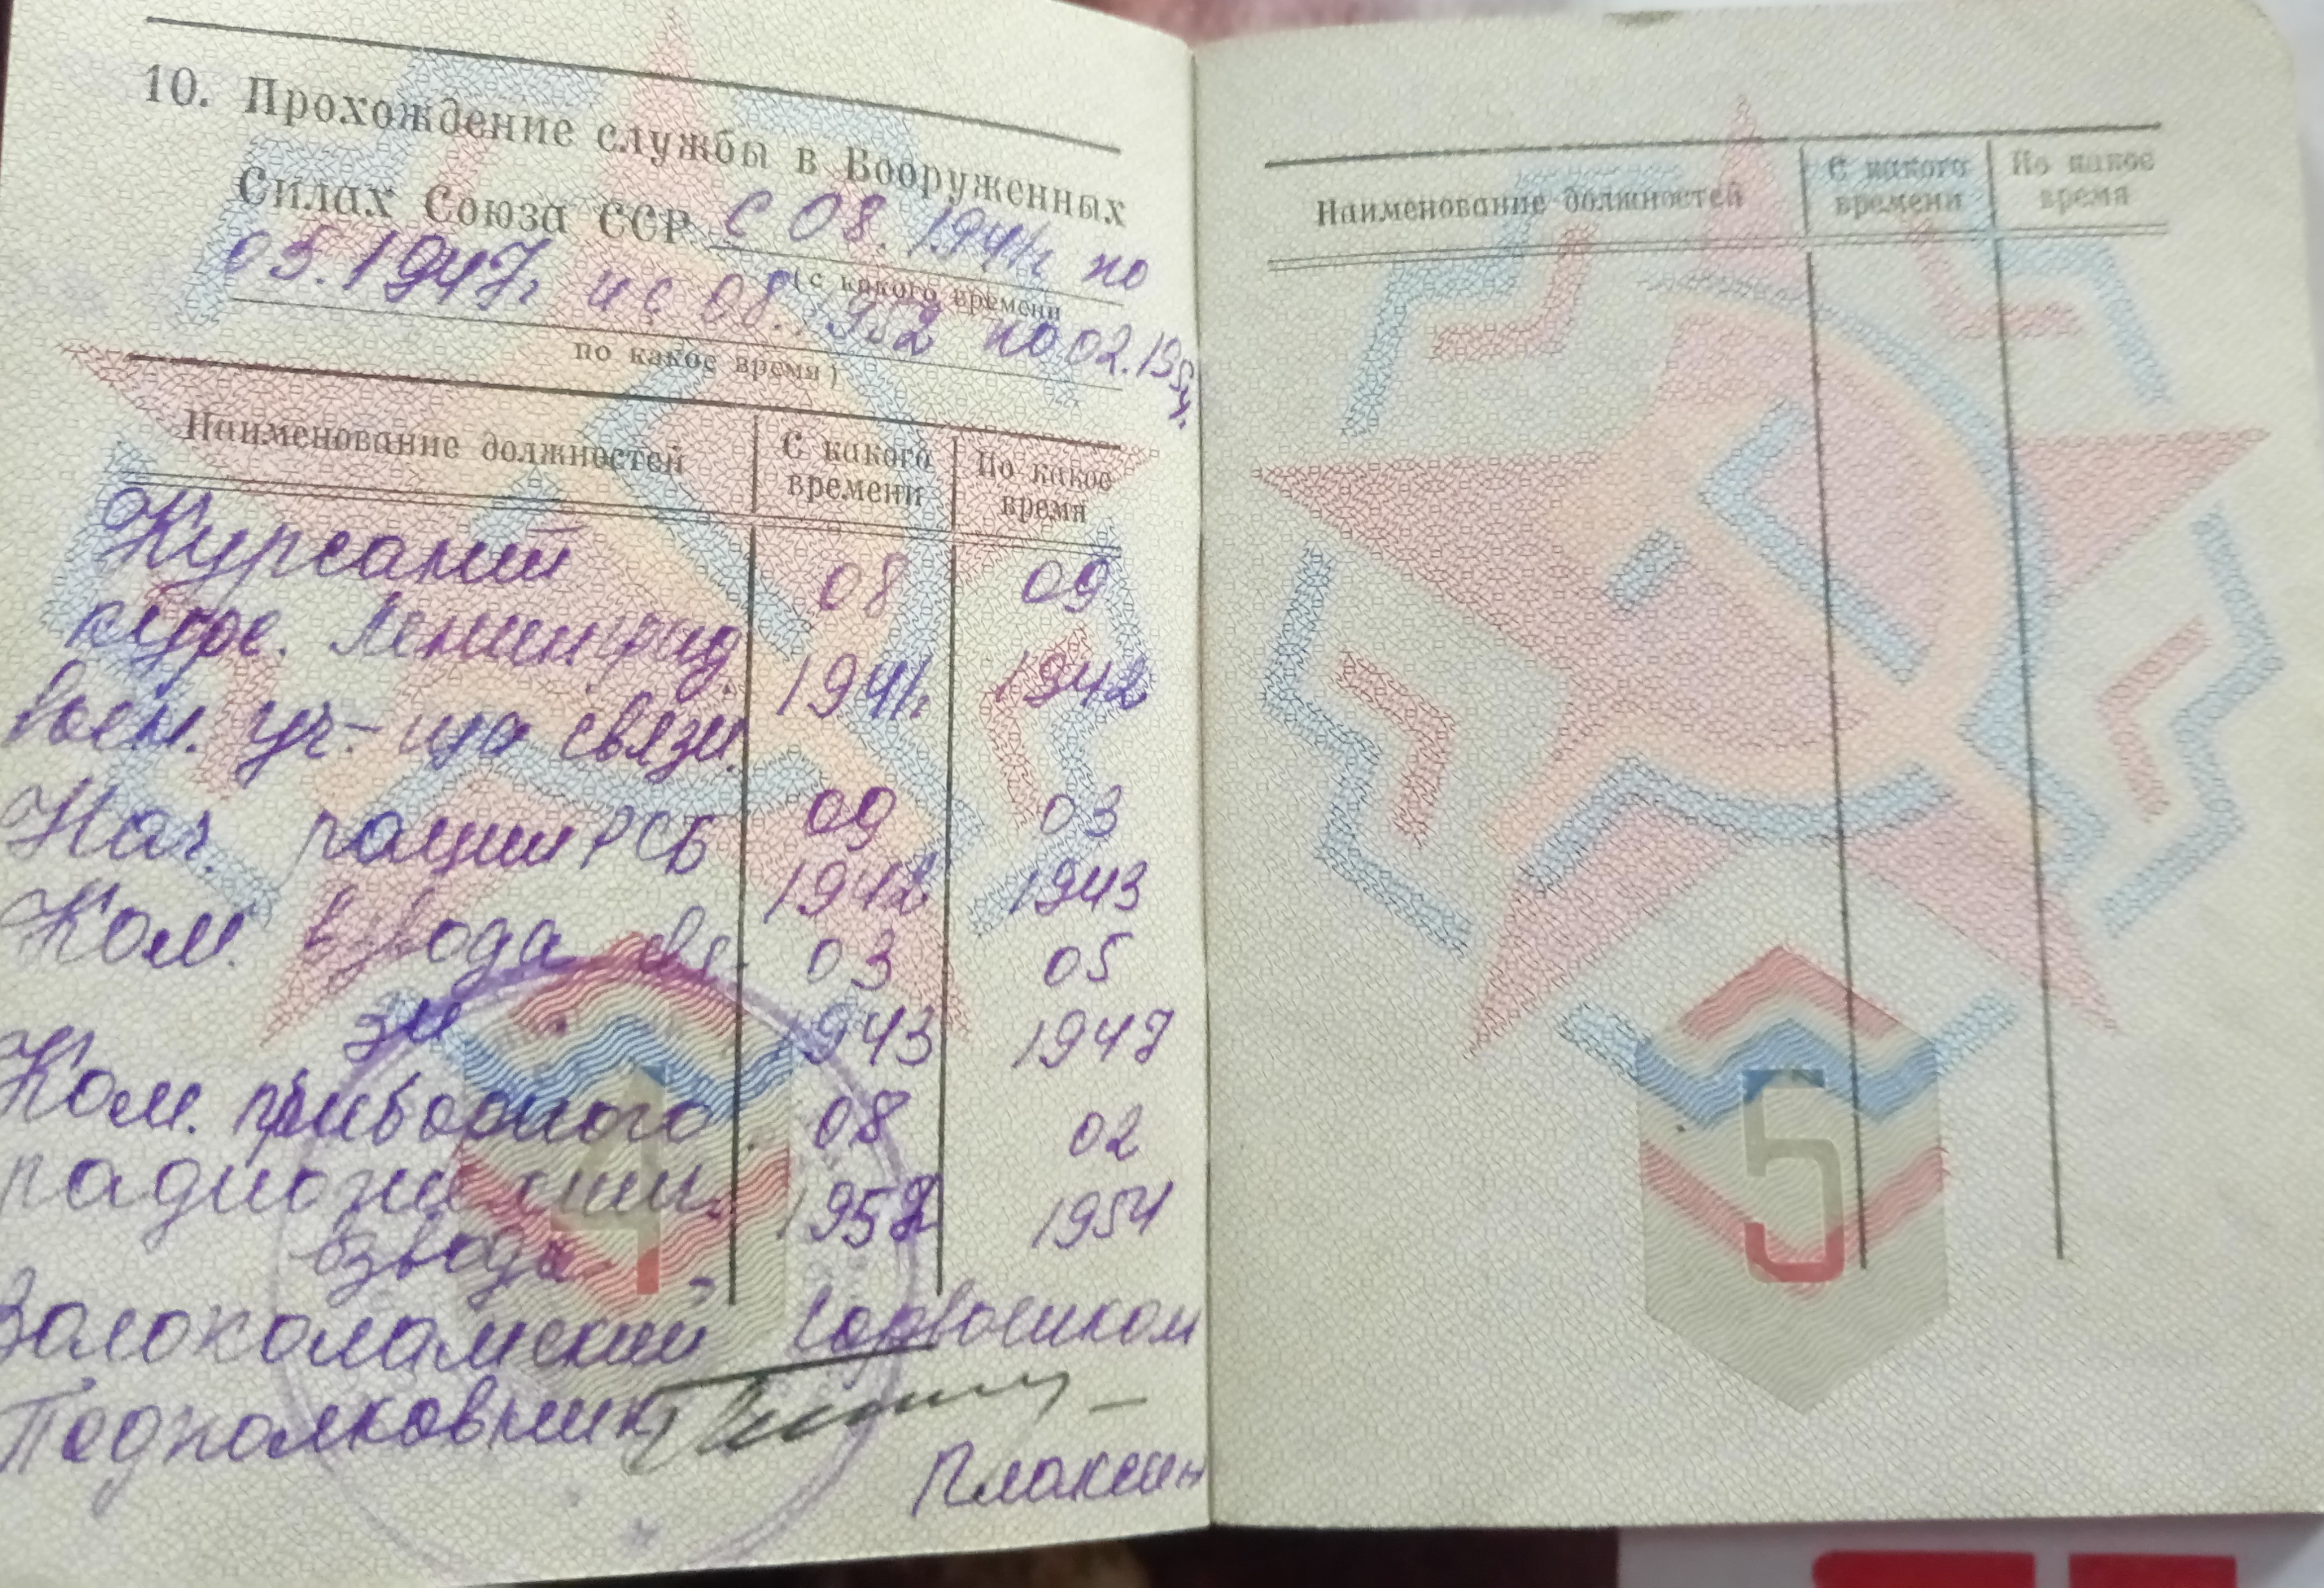 10. Прохождение службы в Вооруженных
Силах Союза ССР с 08.1941г по
(с какого времени
05.1947г и с 08.1952 по 02.1954.
по какое время)
Наименование должностей С какого времени По какое время
Курсант 08 09
Ленинград. 1941г 1942
воен. уч-ща связи.
Нач. рации РСБ 09 03
1942 1943
Ком. взвода свя- 03 05
зи 1943 1947
Ком. приборного 08 02
1952 1954
взвода
Волоколамский горвоенком
Подполковник
Плаксин
4
Наименование должностей С какого времени По какое время
5